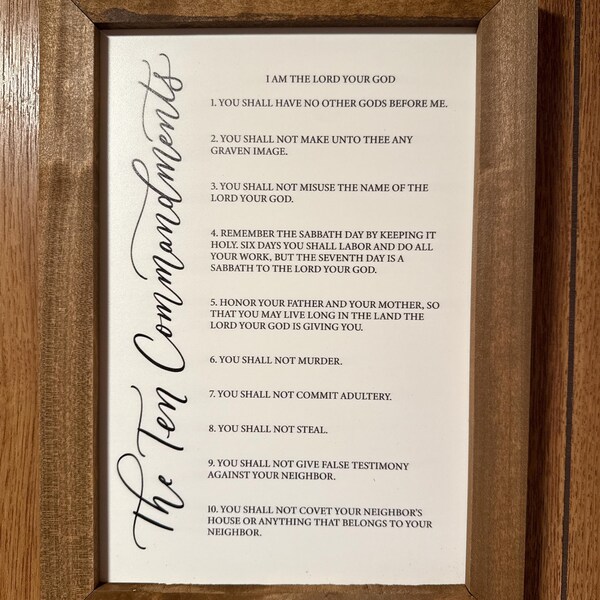 The Ten Commandments
I AM THE LORD YOUR GOD
1. YOU SHALL HAVE NO OTHER GODS BEFORE ME.
2. YOU SHALL NOT MAKE UNTO THEE ANY
GRAVEN IMAGE.
3. YOU SHALL NOT MISUSE THE NAME OF THE
LORD YOUR GOD.
4. REMEMBER THE SABBATH DAY BY KEEPING IT
HOLY. SIX DAYS YOU SHALL LABOR AND DO ALL
YOUR WORK, BUT THE SEVENTH DAY IS A
SABBATH TO THE LORD YOUR GOD.
5. HONOR YOUR FATHER AND YOUR MOTHER, SO
THAT YOU MAY LIVE LONG IN THE LAND THE
LORD YOUR GOD IS GIVING YOU.
6. YOU SHALL NOT MURDER.
7. YOU SHALL NOT COMMIT ADULTERY.
8. YOU SHALL NOT STEAL.
9. YOU SHALL NOT GIVE FALSE TESTIMONY
AGAINST YOUR NEIGHBOR.
10. YOU SHALL NOT COVET YOUR NEIGHBOR'S
HOUSE OR ANYTHING THAT BELONGS TO YOUR
NEIGHBOR.